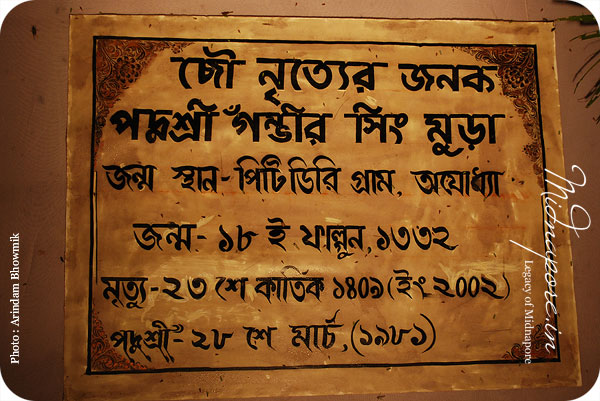 ছৌ নৃত্যের জনক
পদ্মশ্রী গম্ভীর সিং মুড়া
জন্ম স্থান - পিটিডিরি গ্রাম, অযোধ্যা
জন্ম - ১৮ ই ফাল্গুন, ১৩৩২
মৃত্যু - ২৩ শে কার্তিক ১৪০৯ (ইং ২০০২)
পদ্মশ্রী - ২৮ শে মার্চ, (১৯৮১)
Photo : Arindam Bhowmik
Midnapore.in
Legacy of Midnapore